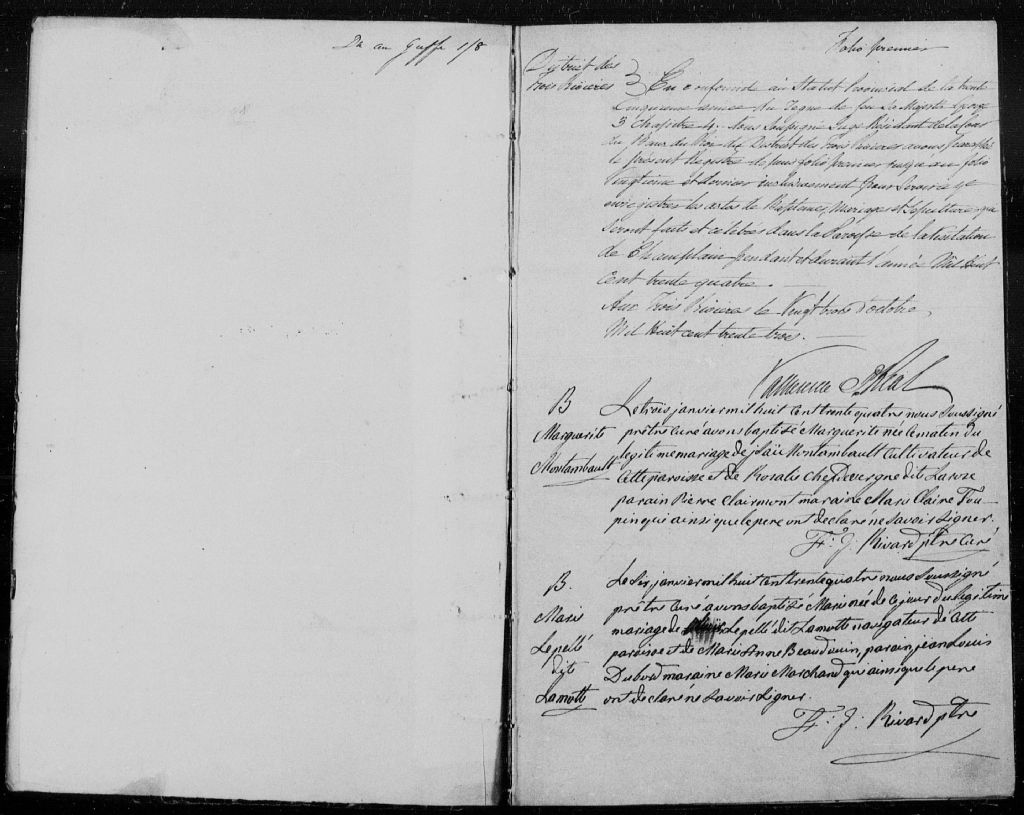 Du au Greffe
Folio premier
District des
Trois Rivières } En conformité au Statut Provincial de la trente
Cinquième année du Règne de feu Sa Majesté George
3 Chapitre 4. Nous Soussigné Juge Résident de la Cour
du Banc du Roi du District des Trois Rivières avons paraphé
le présent Registre de puis folio premier jusqu'au folio
Vingtième et dernier inclusivement pour Servir à y
enregistrer les actes de Baptêmes, Mariages et Sépultures qui
Seront faits et célébrés dans la Paroisse de la Visitation
de Champlain pendant et durant l'année Mil Huit
Cent trente quatre.
Aux Trois Rivières le Vingt trois d'octobre
Mil Huit cent trente trois.
B
Marguerite
Montambault
Le trois janvier mil huit cent trente quatre nous Soussigné
prêtre curé avons baptisé Marguerite née le matin du
legitime mariage de Montambault cultivateur de
cette paroisse et de Rosalie Chedevergne dit Larose
parain Pierre Clairmont maraine Marie Claire Tou-
pin qui ainsi que le pere ont declaré ne Savoir Signer.
Fr: J. Rivard ptre Curé
B.
Marie
Lepellé
dit
Lamotte
Le Six janvier mil huit cent trente quatre nous Soussigné
prêtre curé avons baptisé Marie née de ce jour du legitime
mariage de Lepellé dit Lamotte navigateur de cette
paroisse et de Marie Anne Beaudouin, parain jean Louis
Dubord maraine Marie Marchand qui ainsi que le pere
ont declaré ne Savoir Signer.
Fr: J: Rivard ptre